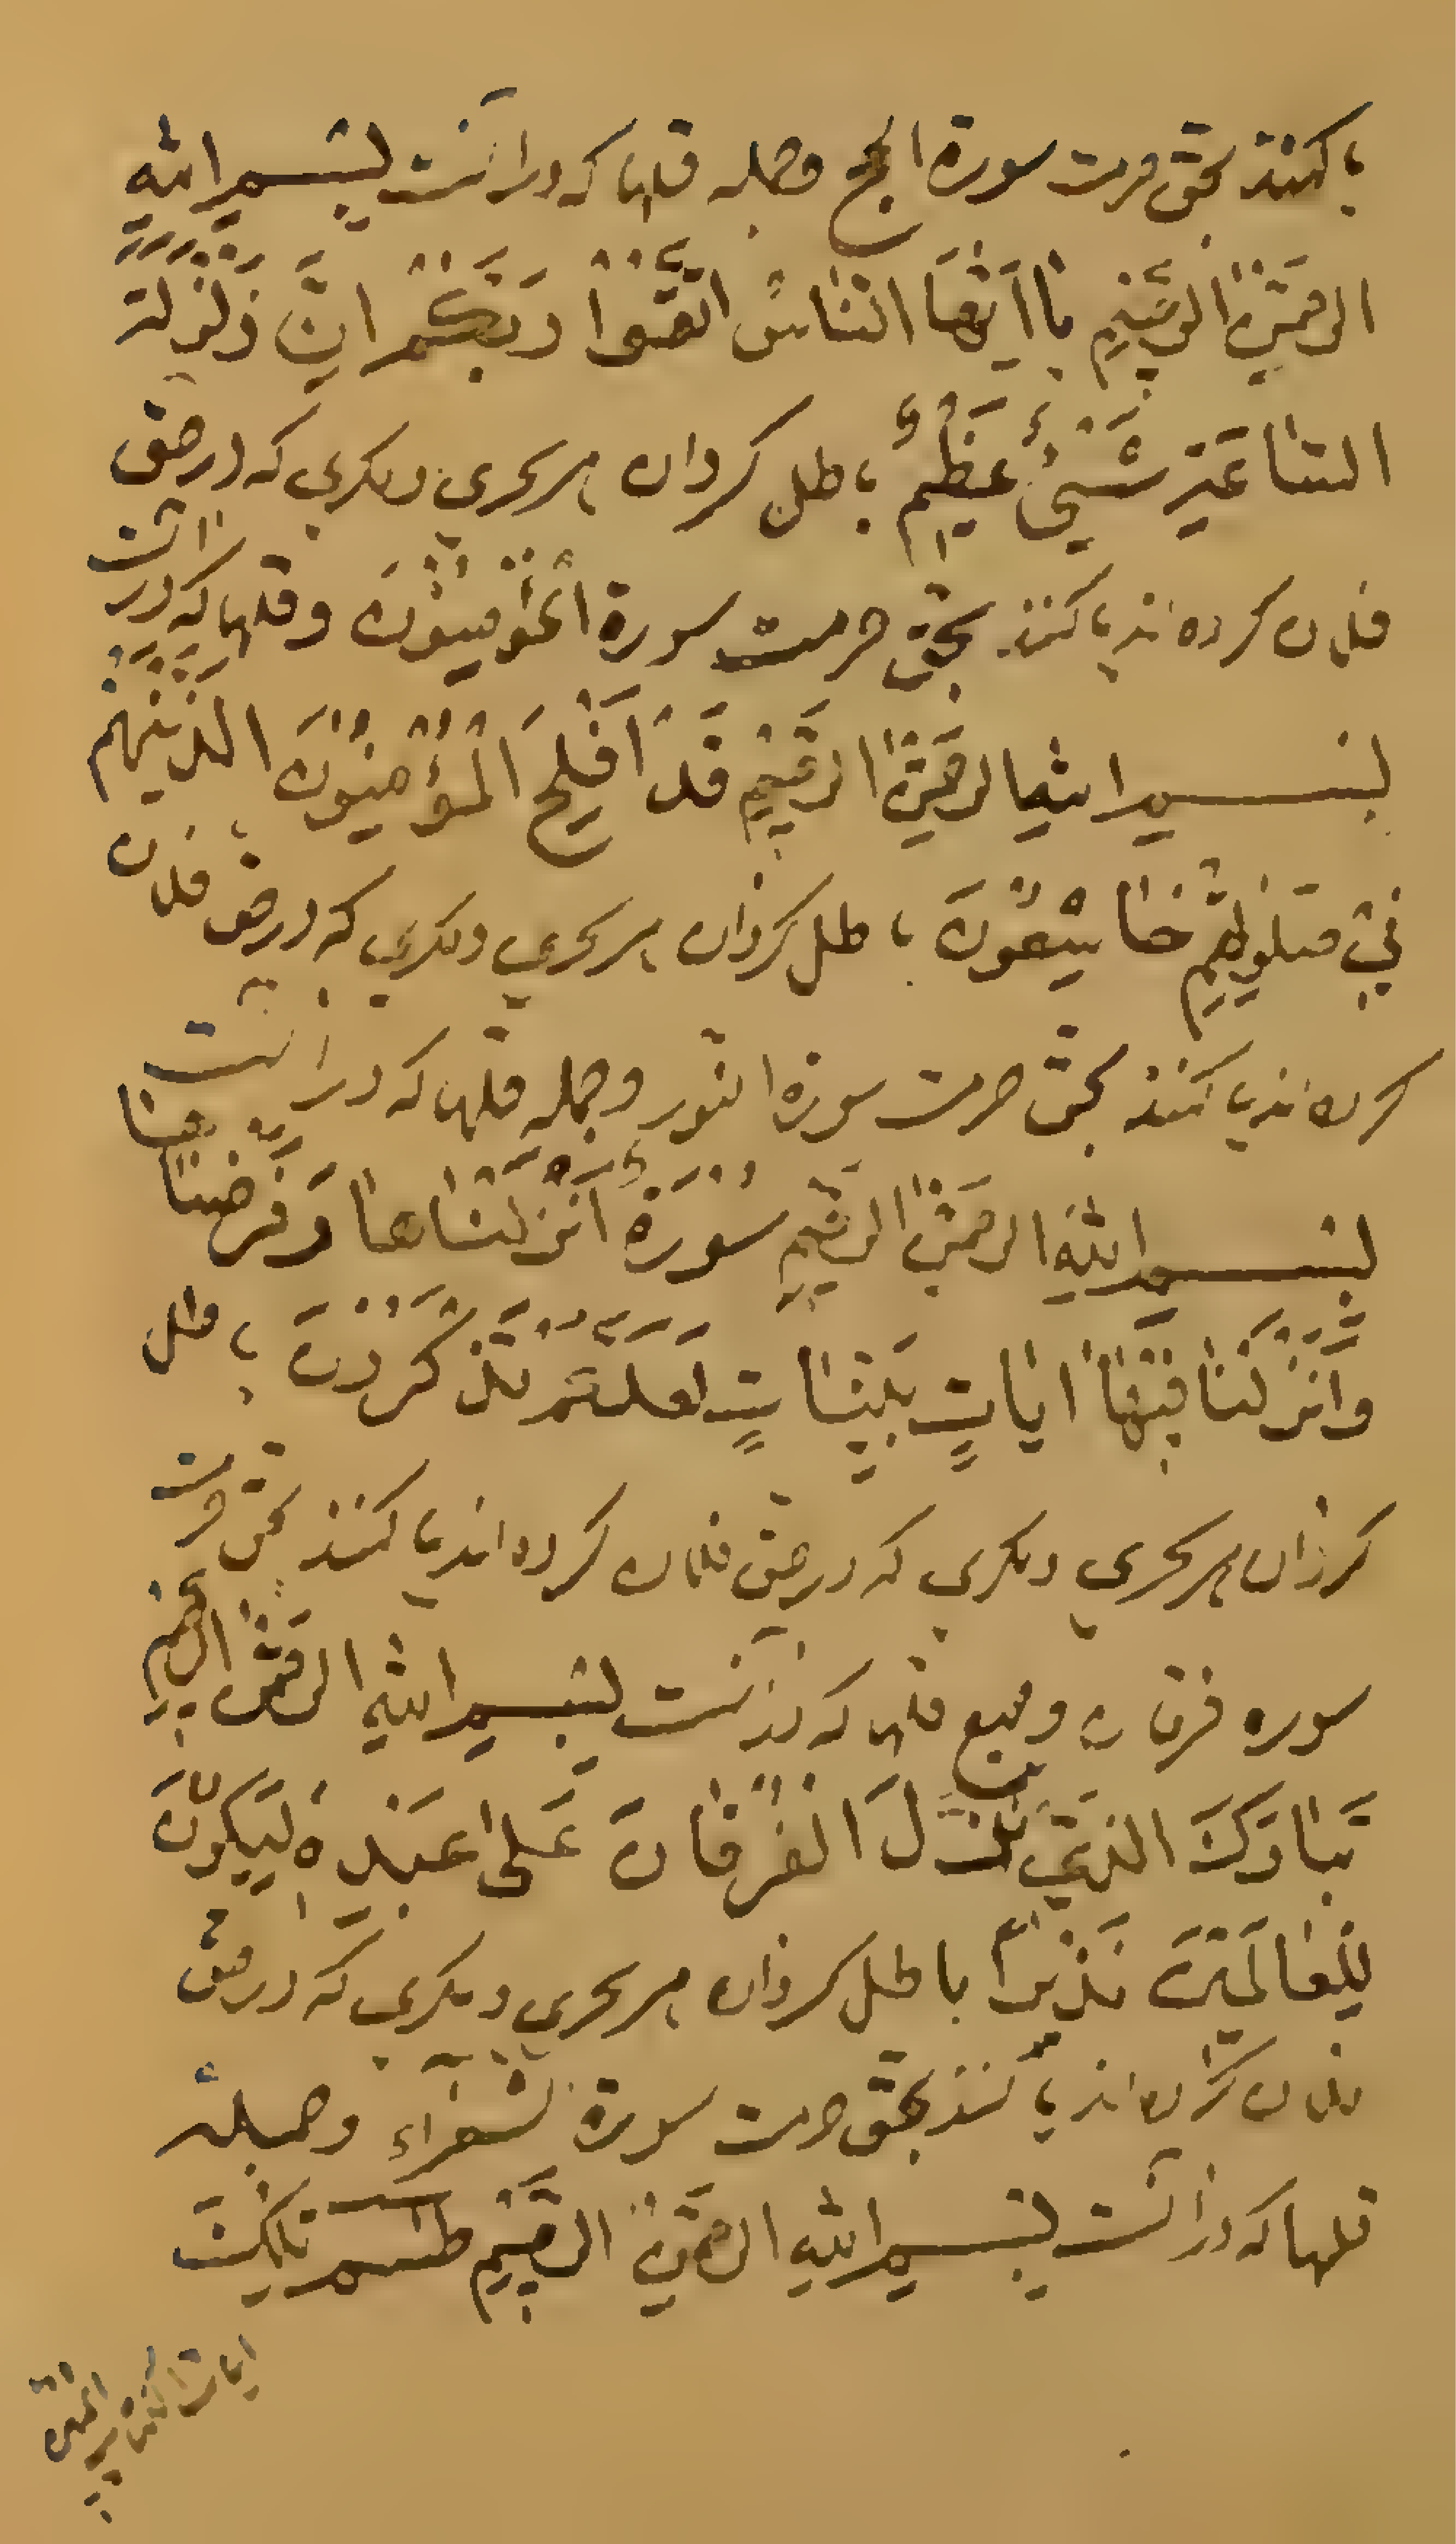 یا کنند بحق حرمت سورة الحج وجمله قلها که دراَنست بِسْمِ اللهِ
الرحمَنِ الرَحِيْمِ يٰا اَيُّهَا النّٰاسُ اتَّقُوْا رَبَّكُمْ اِنَّ زَلْزَلَة
السّٰاعَةِ شَيْئٌ عَظِيْمٌ باطل کردان هر سحری ومکری که در حق
فلان کرده اند یا کنند بحق حرمت سورة المُؤْمِنُوْنَ وقلها که دراَنست
بِسْمِ اللهِ الرحمَنِ الرَحِيْمِ قَدْ اَفْلَحَ الْمُؤْمِنُوْنَ الَّذِيْنَهُمْ
فِيْ صَلٰوتِهِمْ خٰاشِعُوْنَ باطل کردان هر سحری ومکری که در حق فلان
کرده اند یا کنند بحق حرمت سورة النور وجمله قلها که دراَنست
بِسْمِ اللهِ الرحمَنِ الرَحِيْمِ سُوْرَةٌ اَنْزَلْنٰاهٰا وَفَرَضْنٰاهٰا
وَاَنْزَلْنٰا فِيْهٰا اٰيٰاتٍ بَيِّنٰاتٍ لَعَلَّكُمْ تَذَكَّرُوْنَ باطل
کردان هر سحری ومکری که در حق فلان کرده اند یا کنند بحق حرمت
سوره فرقان وجمیع قلها که دراَنست بِسْمِ اللهِ الرحمَنِ الرَحِيْمِ
تَبٰارَكَ الَّذِيْ نَزَّلَ الْفُرْقٰانَ عَلٰى عَبْدِهٖ لِيَكُوْنَ
لِلْعٰالَمِيْنَ نَذِيْراً باطل کردان هر سحری ومکری که در حق
فلان کرده اند یا کنند بحق حرمت سورة الشعرآء وجمله
قلها که دراَنست بِسْمِ اللهِ الرحمَنِ الرَحِيْمِ طٰسٓمٓ تِلْكَ
اٰيٰاتُ الْكِتٰابِ الْمُبِيْنِ